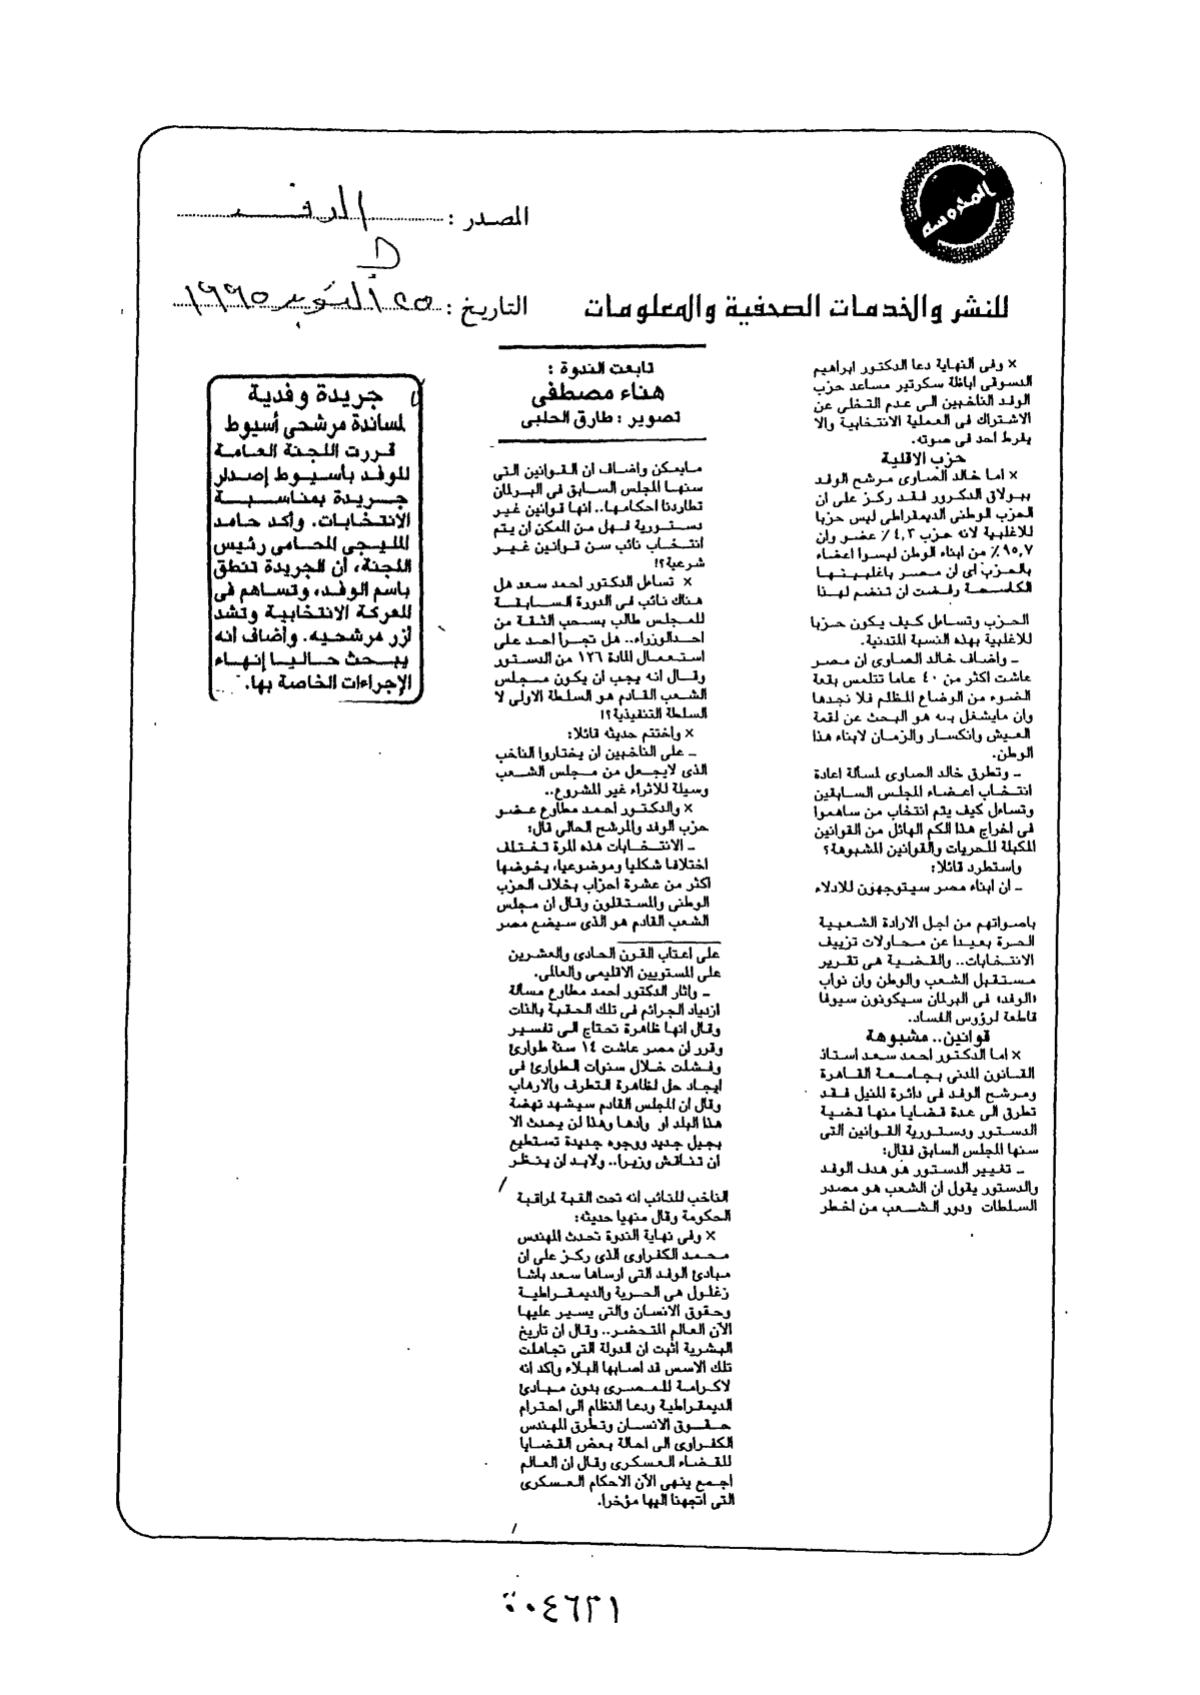 المحروسة
المصدر : الوفد
للنشر والخدمات الصحفية والمعلومات
التاريخ : ٢٥ أكتوبر ١٩٩٥
× وفى النهاية دعا الدكتور ابراهيم
الدسوقى اباظة سكرتير مساعد حزب
الوفد الناخبين الى عدم التخلى عن
الاشتراك فى العملية الانتخابية والا
يفرط احد فى صوته.
حزب الاقلية
× اما خالد الصاوى مرشح الوفد
ببولاق الدكرور فقد ركز على ان
الحزب الوطنى الديمقراطى ليس حزبا
للاغلبية لانه حزب ٤,٣٪ عضو وان
٩٥,٧٪ من ابناء الوطن ليسوا اعضاء
بالحزب اى ان مصر باغلبيتها
الكاسحة رفضت ان تنضم لهذا
الحزب وتساءل كيف يكون حزبا
للاغلبية بهذه النسبة المتدنية.
ـ واضاف خالد الصاوى ان مصر
عاشت اكثر من ٤٠ عاما تتلمس بقعة
الضوء من الوضاع المظلم فلا نجدها
وان مايشغل باله هو البحث عن لقمة
العيش وانكسار والزمان لابناء هذا
الوطن.
ـ وتطرق خالد الصاوى لمسألة اعادة
انتخاب اعضاء المجلس السابقين
وتساءل كيف يتم انتخاب من ساهموا
فى اخراج هذا الكم الهائل من القوانين
المكبلة للحريات والقوانين المشبوهة؟
واستطرد قائلا:
ـ ان ابناء مصر سيتوجهون للادلاء
باصواتهم من اجل الارادة الشعبية
الحرة بعيدا عن محاولات تزييف
الانتخابات.. والقضية هى تقرير
مستقبل الشعب والوطن وان نواب
«الوفد» فى البرلمان سيكونون سيوفا
قاطعة لرؤوس الفساد.
قوانين.. مشبوهة
× اما الدكتور احمد سعد استاذ
القانون المدنى بجامعة القاهرة
ومرشح الوفد فى دائرة المنيل فقد
تطرق الى عدة قضايا منها قضية
الدستور ودستورية القوانين التى
سنها المجلس السابق فقال:
ـ تغيير الدستور هو هدف الوفد
والدستور يقول ان الشعب هو مصدر
السلطات ودور الشعب من اخطر
تابعت الندوة :
هناء مصطفى
تصوير : طارق الحلبى
مايمكن واضاف ان القوانين التى
سنها المجلس السابق فى البرلمان
تطاردنا احكامها.. انها قوانين غير
دستورية فهل من الممكن ان يتم
انتخاب نائب سن قوانين غير
شرعية؟!
× تساءل الدكتور احمد سعد هل
هناك نائب فى الدورة السابقة
للمجلس طالب بسحب الثقة من
احدالوزراء.. هل تجرأ احد على
استعمال المادة ١٢٦ من الدستور
وقال انه يجب ان يكون مجلس
الشعب القادم هو السلطة الاولى لا
السلطة التنفيذية؟!
× واختتم حديثه قائلا:
ـ على الناخبين ان يختاروا الناخب
الذى لايجعل من مجلس الشعب
وسيلة للاثراء غير المشروع..
× والدكتور احمد مطاوع عضو
حزب الوفد والمرشح الحالى قال:
ـ الانتخابات هذه المرة تختلف
اختلافا شكليا وموضوعيا، يخوضها
اكثر من عشرة احزاب بخلاف الحزب
الوطنى والمستقلون وقال ان مجلس
الشعب القادم هو الذى سيضع مصر
على اعتاب القرن الحادى والعشرين
على المستويين الاقليمى والعالى.
ـ واثار الدكتور احمد مطاوع مسألة
ازدياد الجرائم فى تلك الحقبة بالذات
وقال انها ظاهرة تحتاج الى تفسير
وقرر ان مصر عاشت ١٤ سنة طوارئ
وفشلت خلال سنوات الطوارئ فى
ايجاد حل لظاهرة التطرف والارهاب
وقال ان المجلس القادم سيشهد نهضة
هذا البلد او وأدها وهذا لن يحدث الا
بجيل جديد ووجوه جديدة تستطيع
ان تناقش وزيرا.. ولابد ان ينظر
الناخب للنائب انه تحت القبة لمراقبة
الحكومة وقال منهيا حديثه:
× وفى نهاية الندوة تحدث المهندس
محمد الكفراوى الذى ركز على ان
مبادئ الوفد التى ارساها سعد باشا
زغلول هى الحرية والديمقراطية
وحقوق الانسان والتى يسير عليها
الآن العالم المتحضر.. وقال ان تاريخ
البشرية اثبت ان الدولة التى تجاهلت
تلك الاسس قد اصابها البلاء واكد انه
لاكرامة للمصرى بدون مبادئ
الديمقراطية ودعا النظام الى احترام
حقوق الانسان وتطرق المهندس
الكفراوى الى احالة بعض القضايا
للقضاء العسكرى وقال ان العالم
اجمع ينهى الآن الاحكام العسكرى
التى اتجهنا اليها مؤخرا.
جريدة وفدية
لمساندة مرشحى أسيوط
قررت اللجنة العامة
للوفد بأسيوط إصدار
جريدة بمناسبة
الانتخابات. وأكد حامد
المليجى المحامى رئيس
اللجنة، أن الجريدة تنطق
باسم الوفد، وتساهم فى
المعركة الانتخابية وتشد
أزر مرشحيه. وأضاف أنه
يبحث حاليا إنهاء
الإجراءات الخاصة بها.